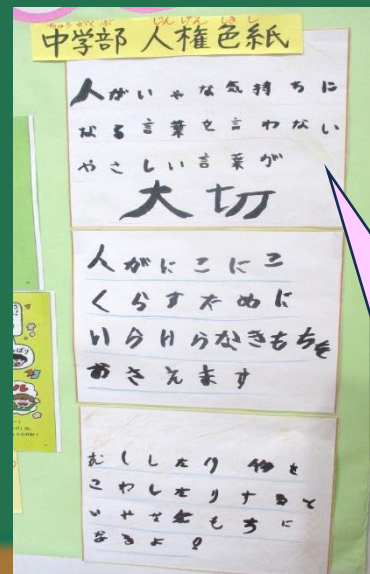 ちゅうがくぶ じんけんしきし
中学部 人権色紙
人がいやな気持ちに
なる言葉を言わない
やさしい言葉が
大切
人がにこにこ
くらすために
いらいらなきもちを
おさえます
むししたり 物を
こわしたりすると
いやな気もちに
なるよ！